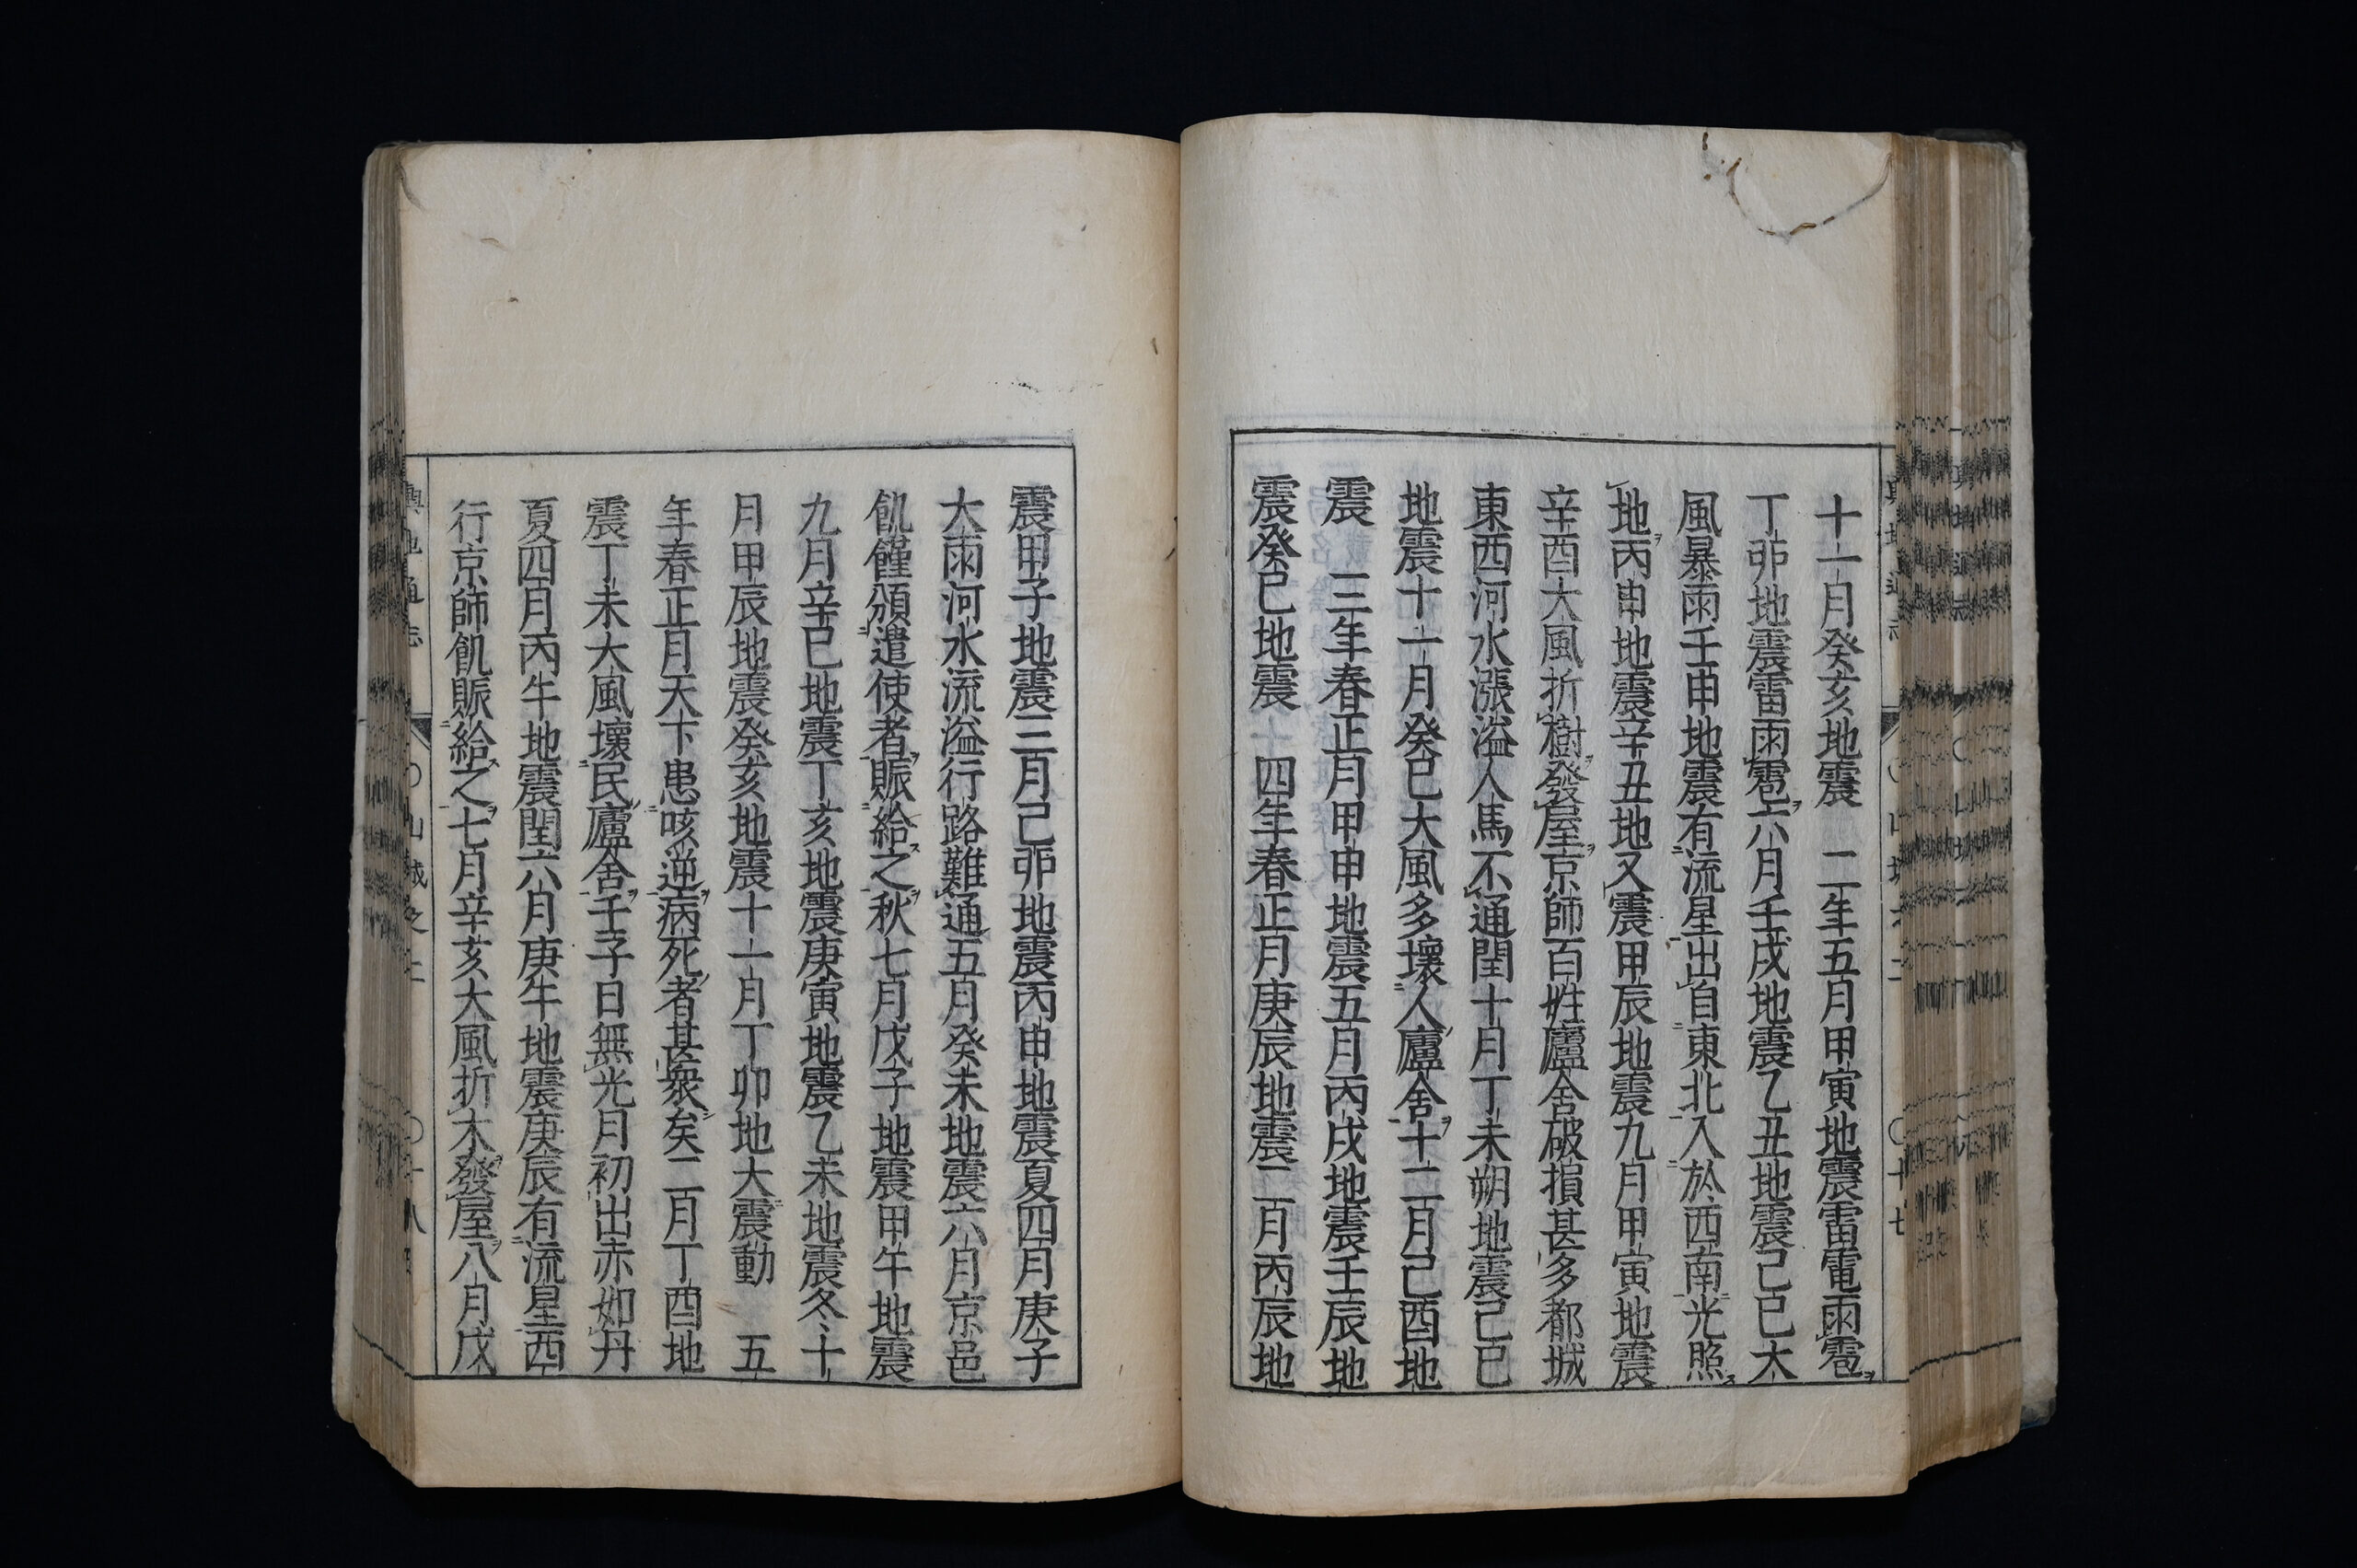 十一月癸亥地震　二年五月甲寅地震雷電雨雹
丁卯地震雷雨雹六月壬戌地震乙丑地震己巳大
風暴雨壬申地震有流星出自東北入於西南光照
地丙申地震辛丑地又震甲辰地震九月甲寅地震
辛酉大風折樹發屋京師百姓廬舍破損甚多都城
東西河水漲溢人馬不通閏十月丁未朔地震己巳
地震十一月癸巳大風多壞人廬舍十二月己酉地
震　三年春正月甲申地震五月丙戌地震壬辰地
震癸巳地震　四年春正月庚辰地震二月丙辰地
震甲子地震三月己卯地震丙申地震夏四月庚子
大雨河水流溢行路難通五月癸未地震六月京邑
飢饉頒遣使者賑給之秋七月戊子地震甲午地震
九月辛巳地震丁亥地震庚寅地震乙未地震冬十
月甲辰地震癸亥地震十一月丁卯地大震動　五
年春正月天下患咳逆病死者甚衆矣二月丁酉地
震丁未大風壞民廬舍壬子日無光月初出赤如丹
夏四月丙午地震閏六月庚午地震庚辰有流星西
行京師飢賑給之七月辛亥大風折木發屋八月戊
輿地通志　〇山城之上　〇十八